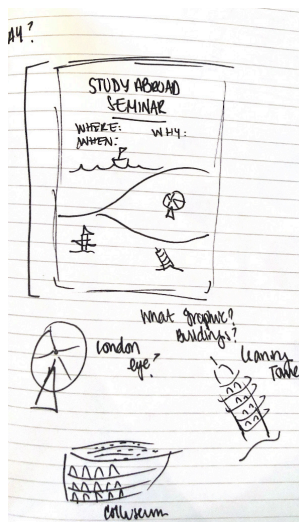 AY?
STUDY ABROAD
SEMINAR
WHERE: WHY:
WHEN:
What graphic?
Buildings?
London
eye?
leaning
Towe
Colluseum